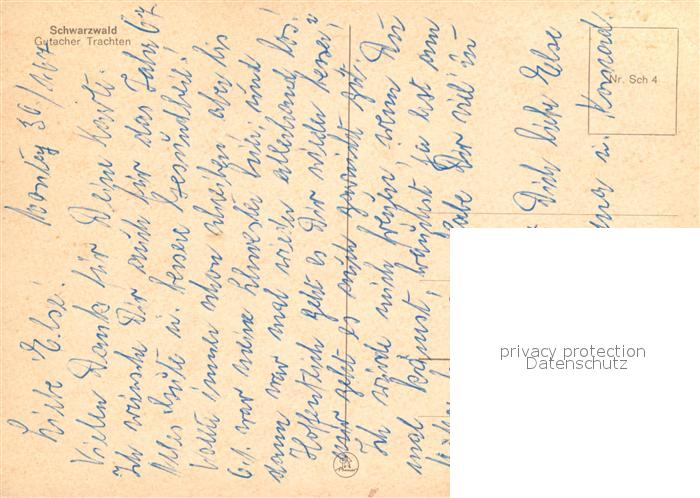 Schwarzwald
Gutacher Trachten
Nr. Sch 4
Montag 30./1.67
Liebe Else!
Vielen Dank für Deine Karte.
Ich wünsche Dir auch für das Jahr 67
Alles Gute u. bessere Gesundheit!
immer schon schreiben, aber bis
6.1. war meine Schwester hier, und
dann war mal wieder allerhand los!
Hoffentlich geht es Dir wieder besser,
mir geht es nicht gut.
Ich würde mich freuen, wenn Du
mal kommst,
habe Dir viel zu
Dich liebe Else
u. Konrad.
privacy protection
Datenschutz